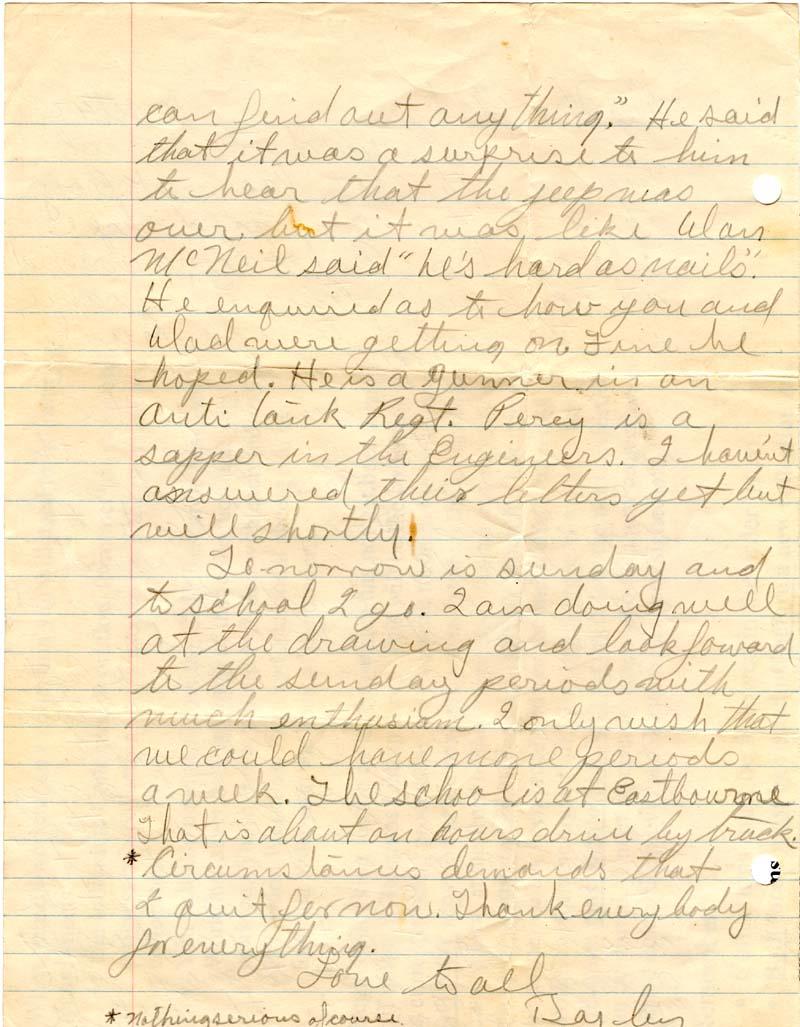 can find out anything." He said
that it was a surprise to him
to hear that the jeep was
over but it was like Alan
McNeil said "he's hard as nails".
He enquired as to how you and
Wad were getting on. Fine he
hoped. He is a gunner in an
anti tank Regt. Percy is a
sapper in the Engineers. I haven't
answered their letters yet but
will shortly.
Tomorrow is sunday and
to school I go. I am doing well
at the drawing and look foward
to the sunday periods with
much enthusiam. I only wish that
we could have more periods
a week. The school is at Eastbourne
That is about an hours drive by truck.
* Circumstances demands that
I quit for now. Thank everybody
for everything.
Love to all
* nothing serious of course.